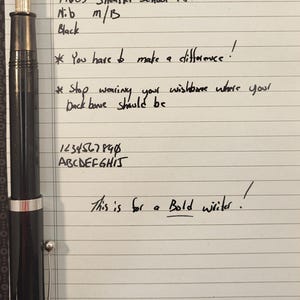 Nib M/B
Black
* You have to make a difference!
* Stop wearing your wishbone where your
backbone should be
1234567890
ABCDEFGHIJ
This is for a Bold writer!